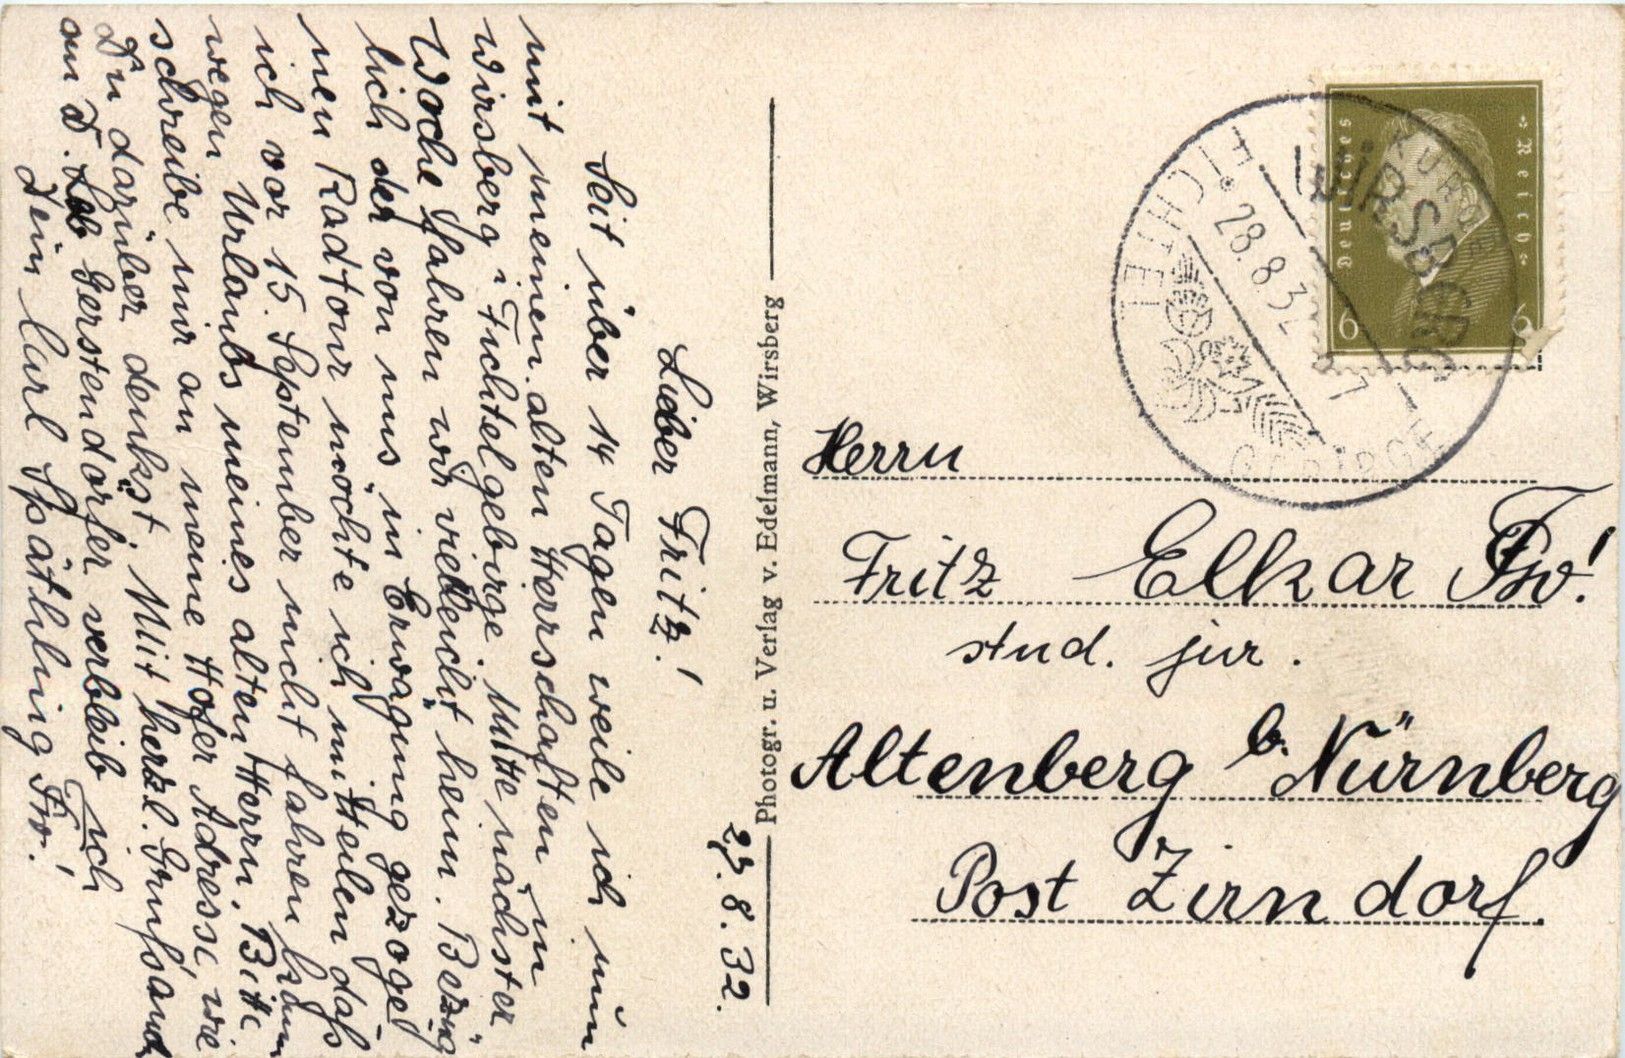 27.8.32.
Lieber Fritz!
Seit über 14 Tagen weile ich nun
mit meinen alten Herrschaften in
Wirsberg i. Fichtelgebirge. Mitte nächster
Woche fahren wir vielleicht heim. Bezüg
lich der von uns in Erwägung gezoge
nen Radtour möchte ich mitteilen daß
ich vor 15. September nicht fahren kann
wegen Urlaubs meines alten Herrn. Bitte
schreibe mir an meine Hofer Adresse, wie
Du darüber denkst. Mit herzl. Gruß
an D. Gerstendörfer verbleib ich
Dein Carl Späthling Fw!
Photogr. u. Verlag v. Edelmann, Wirsberg
Deutsches Reich
6 6
KURORT
WIRSBERG
28.8.32
FICHTEL
GEBIRGE
Herrn
Fritz Elkar Fw!
stud. jur.
Altenberg b. Nürnberg
Post Zirndorf.